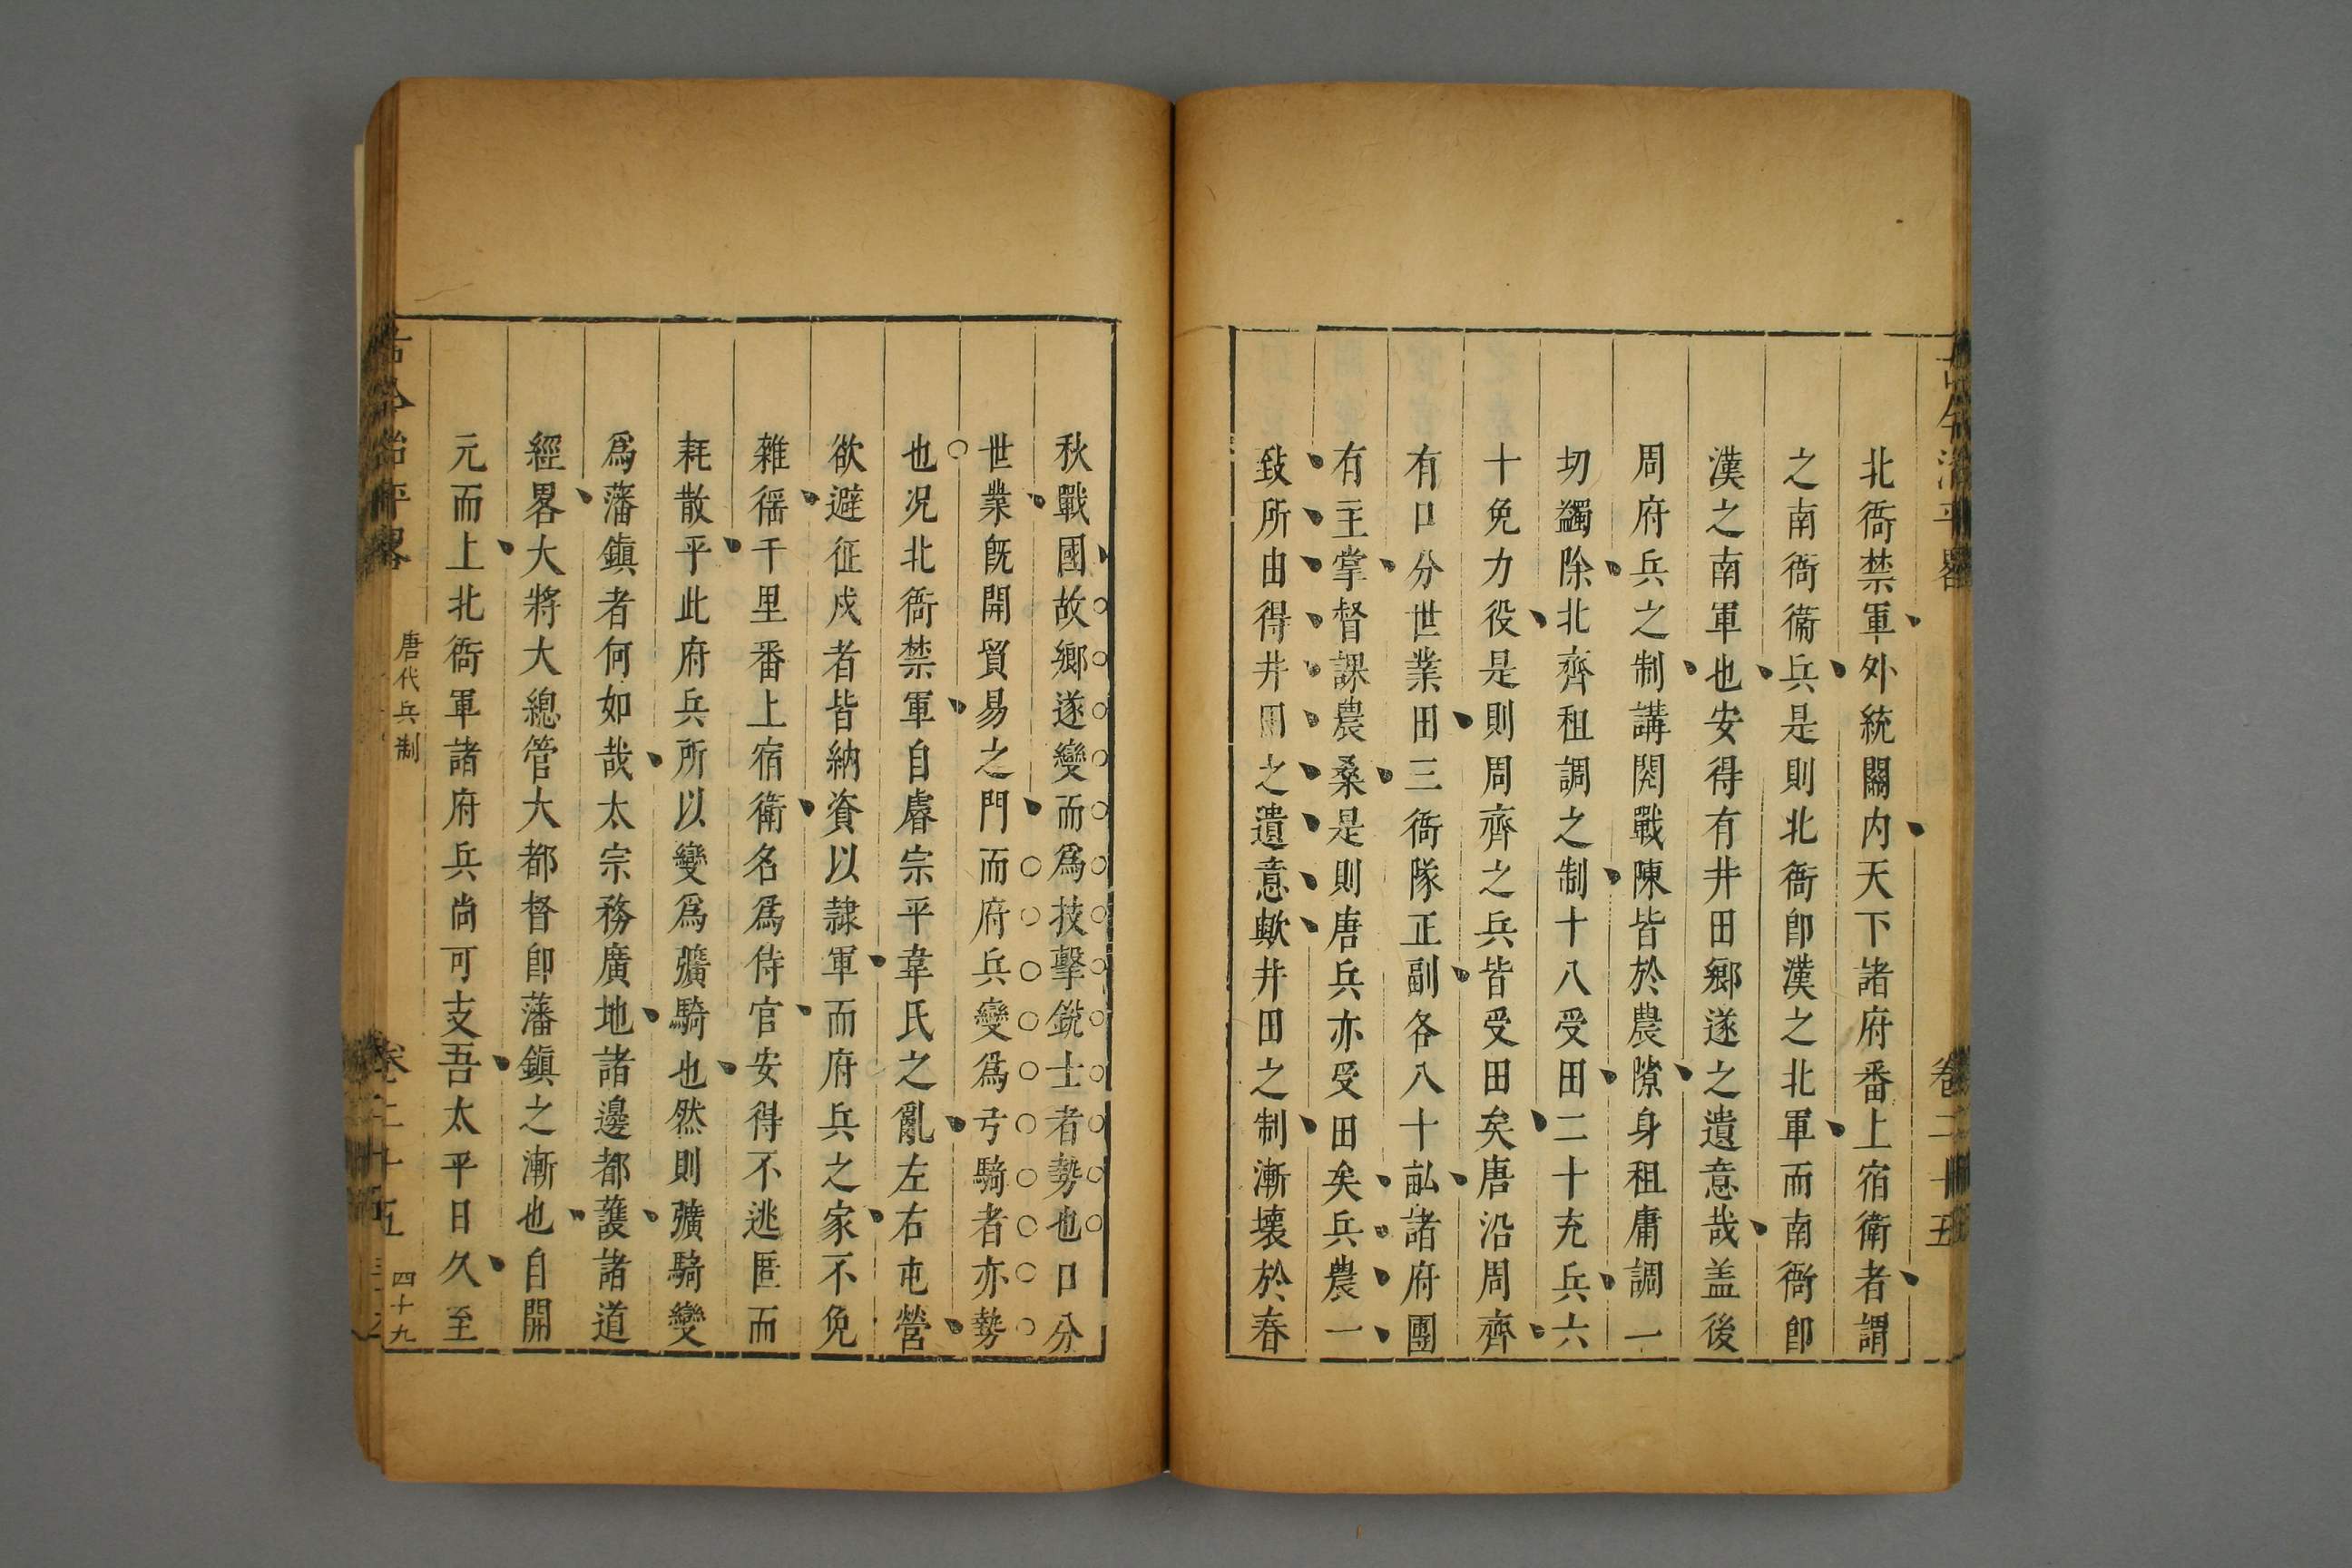 北衙禁軍外統關内天下諸府番上宿衛者謂
之南衙衞兵是則北衙卽漢之北軍而南衙卽
漢之南軍也安得有井田鄉遂之遺意哉盖後
周府兵之制講閱戰陳皆於農隙身租庸調一
切蠲除北齊租調之制十八受田二十充兵六
十免力役是則周齊之兵皆受田矣唐沿周齊
有口分世業田三衙隊正副各八十畝諸府團
有主掌督課農桑是則唐兵亦受田矣兵農一
致所由得井田之遺意歟井田之制漸壊於春
秋戰國故鄉遂變而爲技擊銳士者勢也口分
世業旣開貿易之門而府兵變爲弓騎者亦勢
也况北衙禁軍自睿宗平韋氏之亂左右屯營
欲避征戍者皆納資以隷軍而府兵之家不免
雜徭千里番上宿衛名爲侍官安得不逃匿而
耗散乎此府兵所以變爲彍騎也然則彍騎變
爲藩鎮者何如哉太宗務廣地諸邊都護諸道
經畧大將大總管大都督卽藩鎮之漸也自開
元而上北衙軍諸府兵尚可支吾太平日久至
古今治平畧
唐代兵制
卷二十五
四十九